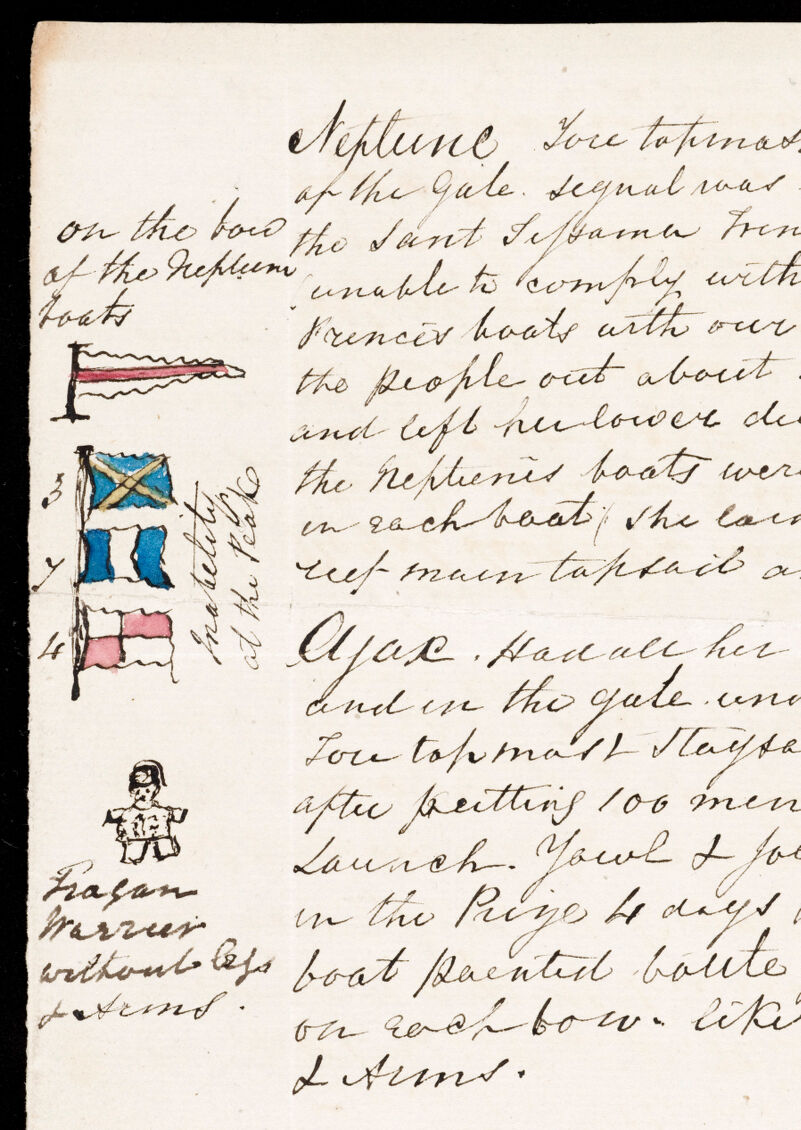 on the bow
of the Neptun
boats
3
7
4
Inabelity
at the Peak
Tragan
Warrier
without Legs
& Arms.
Neptune Fore topmas
of the Gale. Segnal was
the Sant
unable to comply with
Princes boats with our
the people out about
and left her lower
the Neptenis boats were
in each boat (she
reef main topsail a
Ajax. Had all her
and in the gale
Fore topmast Staysa
after putting 100 men
Launch. Yawl & Jo
in the Prize 4 days
boat paented
on each bow. like
& Arms.